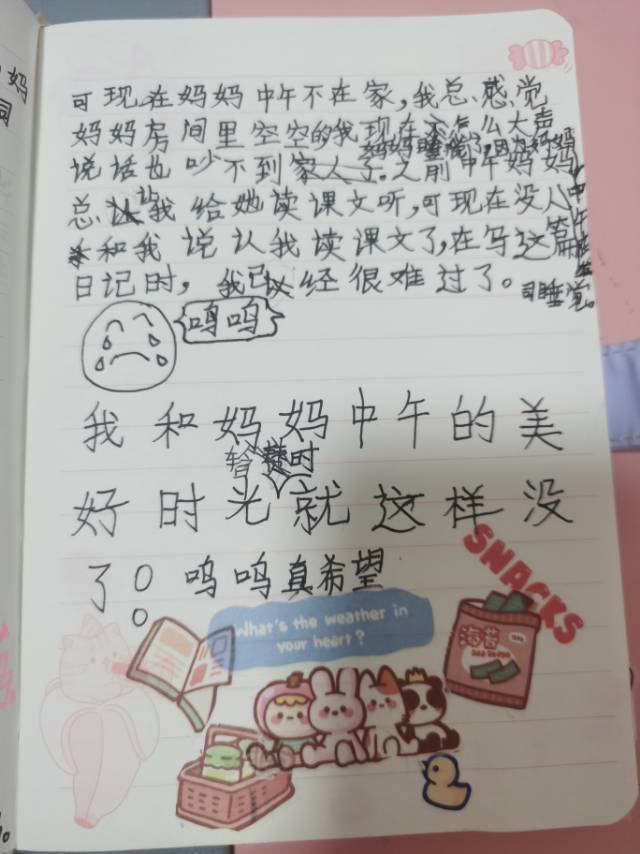 可现在妈妈中午不在家，我总感觉
妈妈房间里空空的我现在不怎么大声
说话也吵不到
了。之前中午妈妈
总让我给她读课文听，可现在没人中午
和我说让我读课文了，在写这篇
日记时，我已经很难过了。
司睡觉。
呜呜
我和妈妈中午的美
好时光暂时就这样没
了。呜呜真希望
。
妈
司
What's the weather in
your heart?
SNACKS
海苔